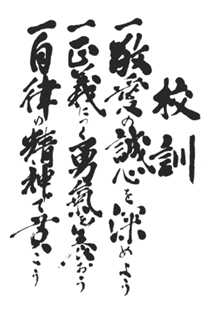 校訓
一敬愛の誠心を深めよう
一正義につく勇氣を養おう
一自律の精神で貫こう